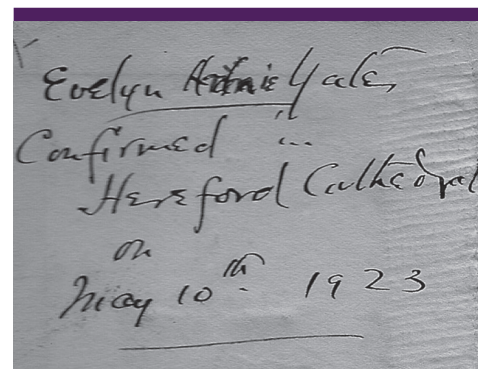 Evelyn Yale
Confirmed in
Hereford Cathedral
on
May 10th 1923